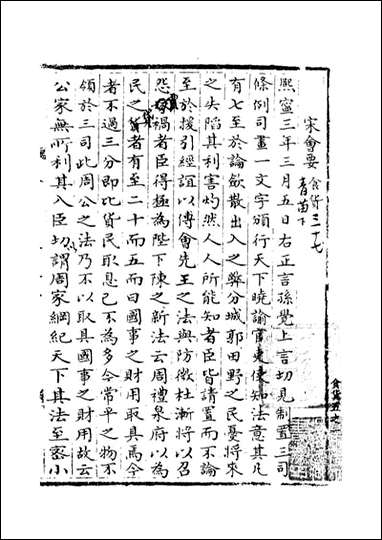 宋會要 食貨三十七
青苗下
熙寧三年三月五日右正言孫覺上言切見制置三司
條例司畫一文字頒行天下曉諭官吏使知法意其凡
有七至於論斂散出入之弊分城郭田野之民憂將來
之失陷其利害灼然人人所能知者臣皆請置而不論
至於援引經誼以傅會先王之法與防微杜漸將以召
怨賈禍者臣得極為陛下陳之新法云周禮泉府以為
民之貸者有至二十而五而曰國事之財用取具焉今
者不過三分即比貸民取息已不為多今常平之物不
領於三司此周公之法乃不以取具國事之財用故云
公家無所利其入臣切謂周家綱紀天下其法至密小
食貨五之